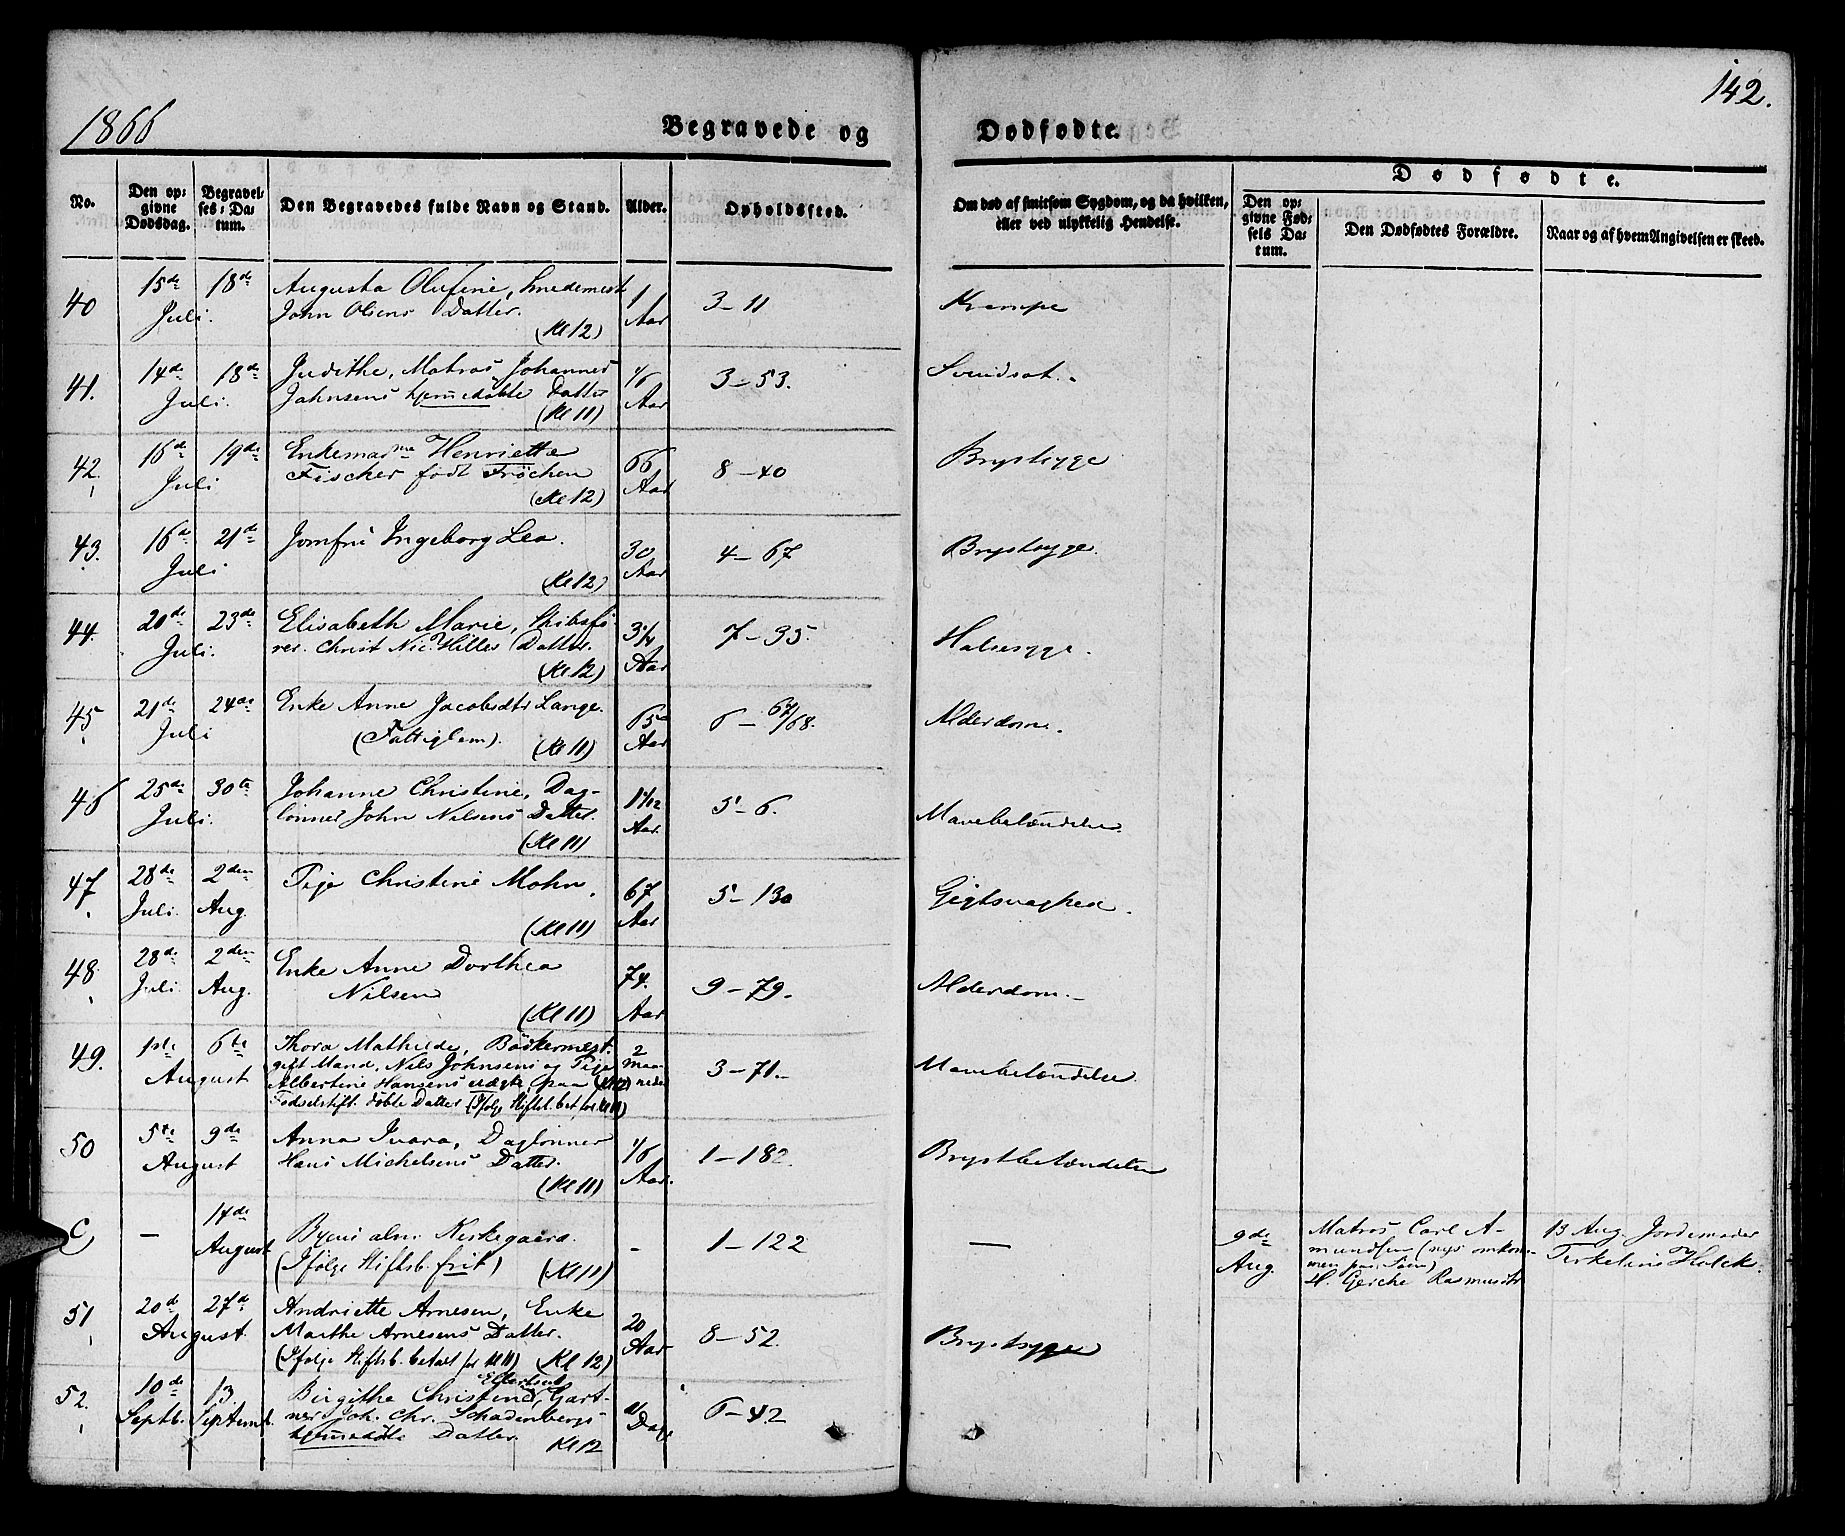 142.
1866
Begravede og Dødfødte.
No.
Den op-
givne
Dødsdag.
Begravel-
ses-Da-
tum.
Den Begravedes fulde Navn og Stand.
Alder.
Opholdssted.
Om død af smitsom Sygdom, og da hvilken,
eller ved ulykkelig Hendelse.
Dødfødte.
Den op-
givne Fød-
sels Da-
tum.
Den Dødfødtes Forældre.
Naar og af hvem Angivelsen er skeed.
40 15de 18de Augusta Olufine, Smedemest. 1 3-11 Krampe
Juli. John Olsens Datter. Aar
(Kl 12)
41. 14de 18de Judithe, Matros Johannes 1/6 3-53.
Juli. Jahnsens hjemmedøbte Datter Aar
(Kl 11)
42. 16de 19de Enkemadme Henriette 66 8-40 Brystsyge
Juli Fischer født Frøchen Aar
(Kl 12)
43. 16de 21de Jomfru Ingeborg Lea. 30 4-67 Brystsyge.
Juli Aar
(Kl 12)
44. 20de 23de Elisabeth Marie, Skibsfø 3 1/4 7-35. Halssyge.
Juli. rer Christ Nic. Hilles Datter. Aar
(Kl 12)
45 21de 24de Enke Anne Jacobsdtr Lange. 65 6-67/68. Alderdom.
Juli (Fattiglem). (Kl 11) Aar
46 25de 30te Johanne Christine, Dag- 1 1/12 5-6. Mavebetændelse.
Juli. lønner John Nilsens Datter. Aar.
(Kl 11)
47 28de 2den Pige Christine Mohn. 67 5-130 Gigtsvaghed.
Juli. Aug. Aar
(Kl 11)
48 28de 2den Enke Anne Dorthea 74. 9-79. Alderdom.
Juli. Aug. Nilsen Aar
(Kl 11)
49. 1ste 6te Thora Mathilde, Bødkermest. 2 3-71. Mavebetændelse.
August gift Mand, Nils Johnsens og Pige Maa-
Albertine Hansens uægte, (paa (Kl 12) neder
Fødselsstift. døbte Datter (Ifølge Stiftsb. bet. for Kl 11)
50 5te 9de Anna Ivara, Daglønner 1/6 1-182. Brystbetændelse
August Hans Michelsens Datter. Aar.
(Kl 11)
C - 14de Byens alm. Kirkegaard. - 1-122 — 9de Matros Carl A- 13 Aug. Jordemoder
August (Ifølge Stiftsb. frit) (Kl 11) Aug. mundsen (nys omkom- Terkeline Holck.
men paa Søen)
H. Gesche Rasmusdtr
51 20d 27d Andriette Arnesen, Enke 20 8-52. Brystsyge
August Marthe Arnesens Datter. Aar
(Ifølge Stiftsb. betalt for Kl 11) (Kl 12)
52. 10de 13. Birgithe Christine Ellertsine, Gart- 6-42
Septb. Septemb. ner Joh. Chr. Schadenbergs Dage
hjemmedøbte Datter.
Kl 12